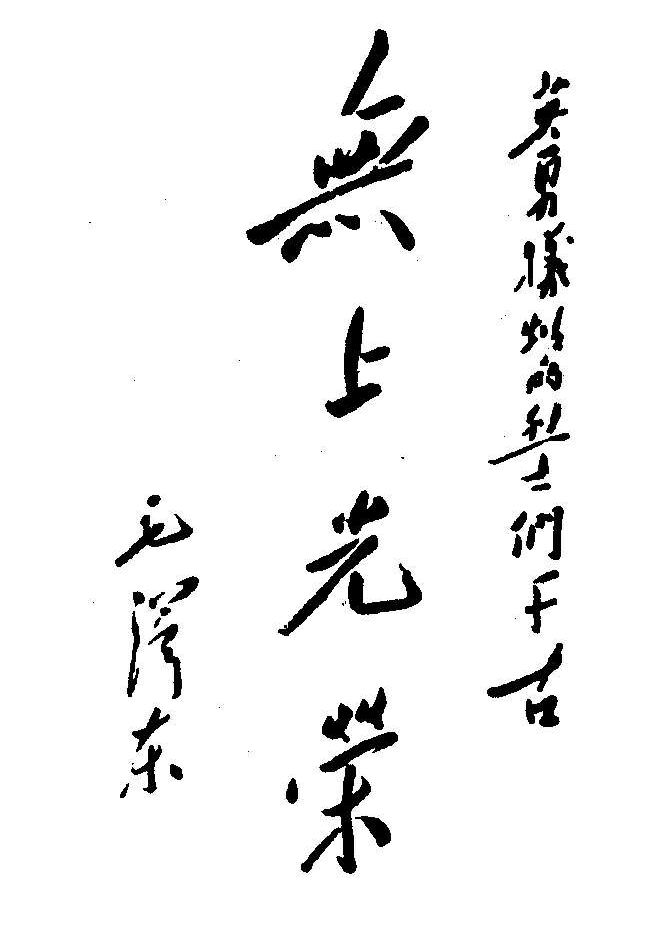 英勇犧牲的烈士們千古
無上光榮
毛澤东